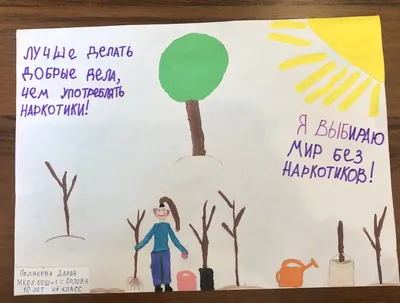 ЛУЧШЕ ДЕЛАТЬ
ДОБРЫЕ ДЕЛА,
ЧЕМ УПОТРЕБЛЯТЬ
НАРКОТИКИ!
Я ВЫБИРАЮ
МИР БЕЗ
НАРКОТИКОВ!
ПОЛЯКОВА ДАРЬЯ
МКОУ СОШ№1 С.ОРЛОВА
10 ЛЕТ 4б КЛАСС